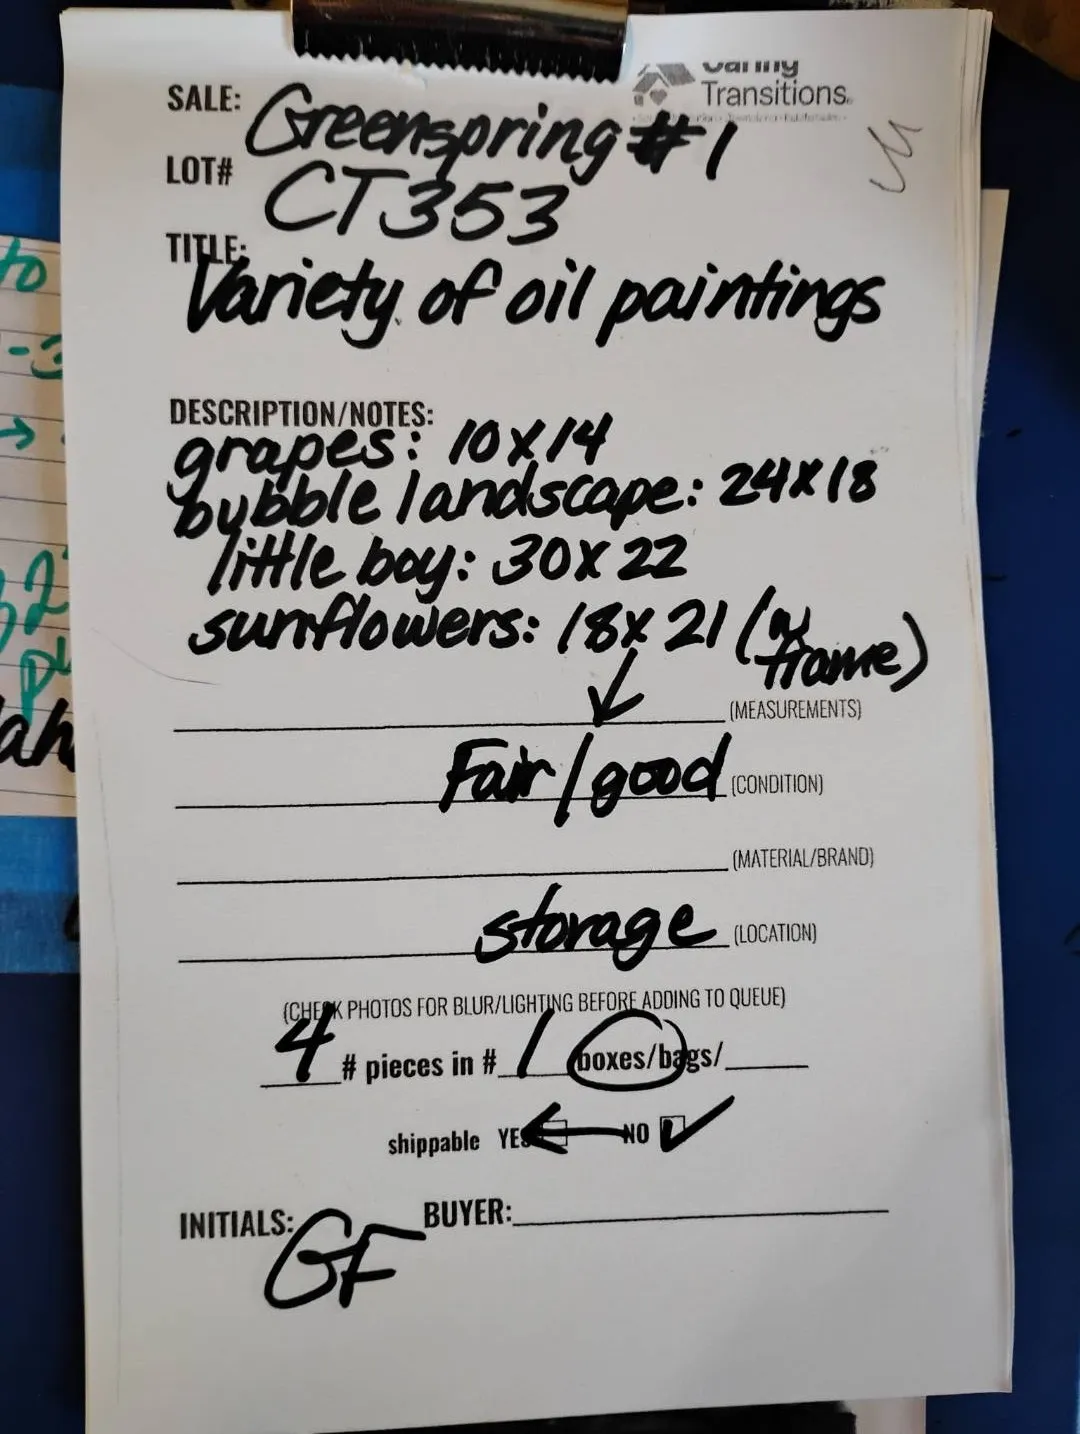 Caring
Transitions
SALE: Greenspring #1
LOT# CT353
TITLE:
Variety of oil paintings
DESCRIPTION/NOTES:
grapes: 10x14
bubble landscape: 24x18
little boy: 30x22
sunflowers: 18x21 (w frame)
(MEASUREMENTS)
Fair/good (CONDITION)
(MATERIAL/BRAND)
storage (LOCATION)
(CHECK PHOTOS FOR BLUR/LIGHTING BEFORE ADDING TO QUEUE)
4 # pieces in # 1 boxes/bags/
shippable YES NO
INITIALS: GF BUYER:
to
-3
32